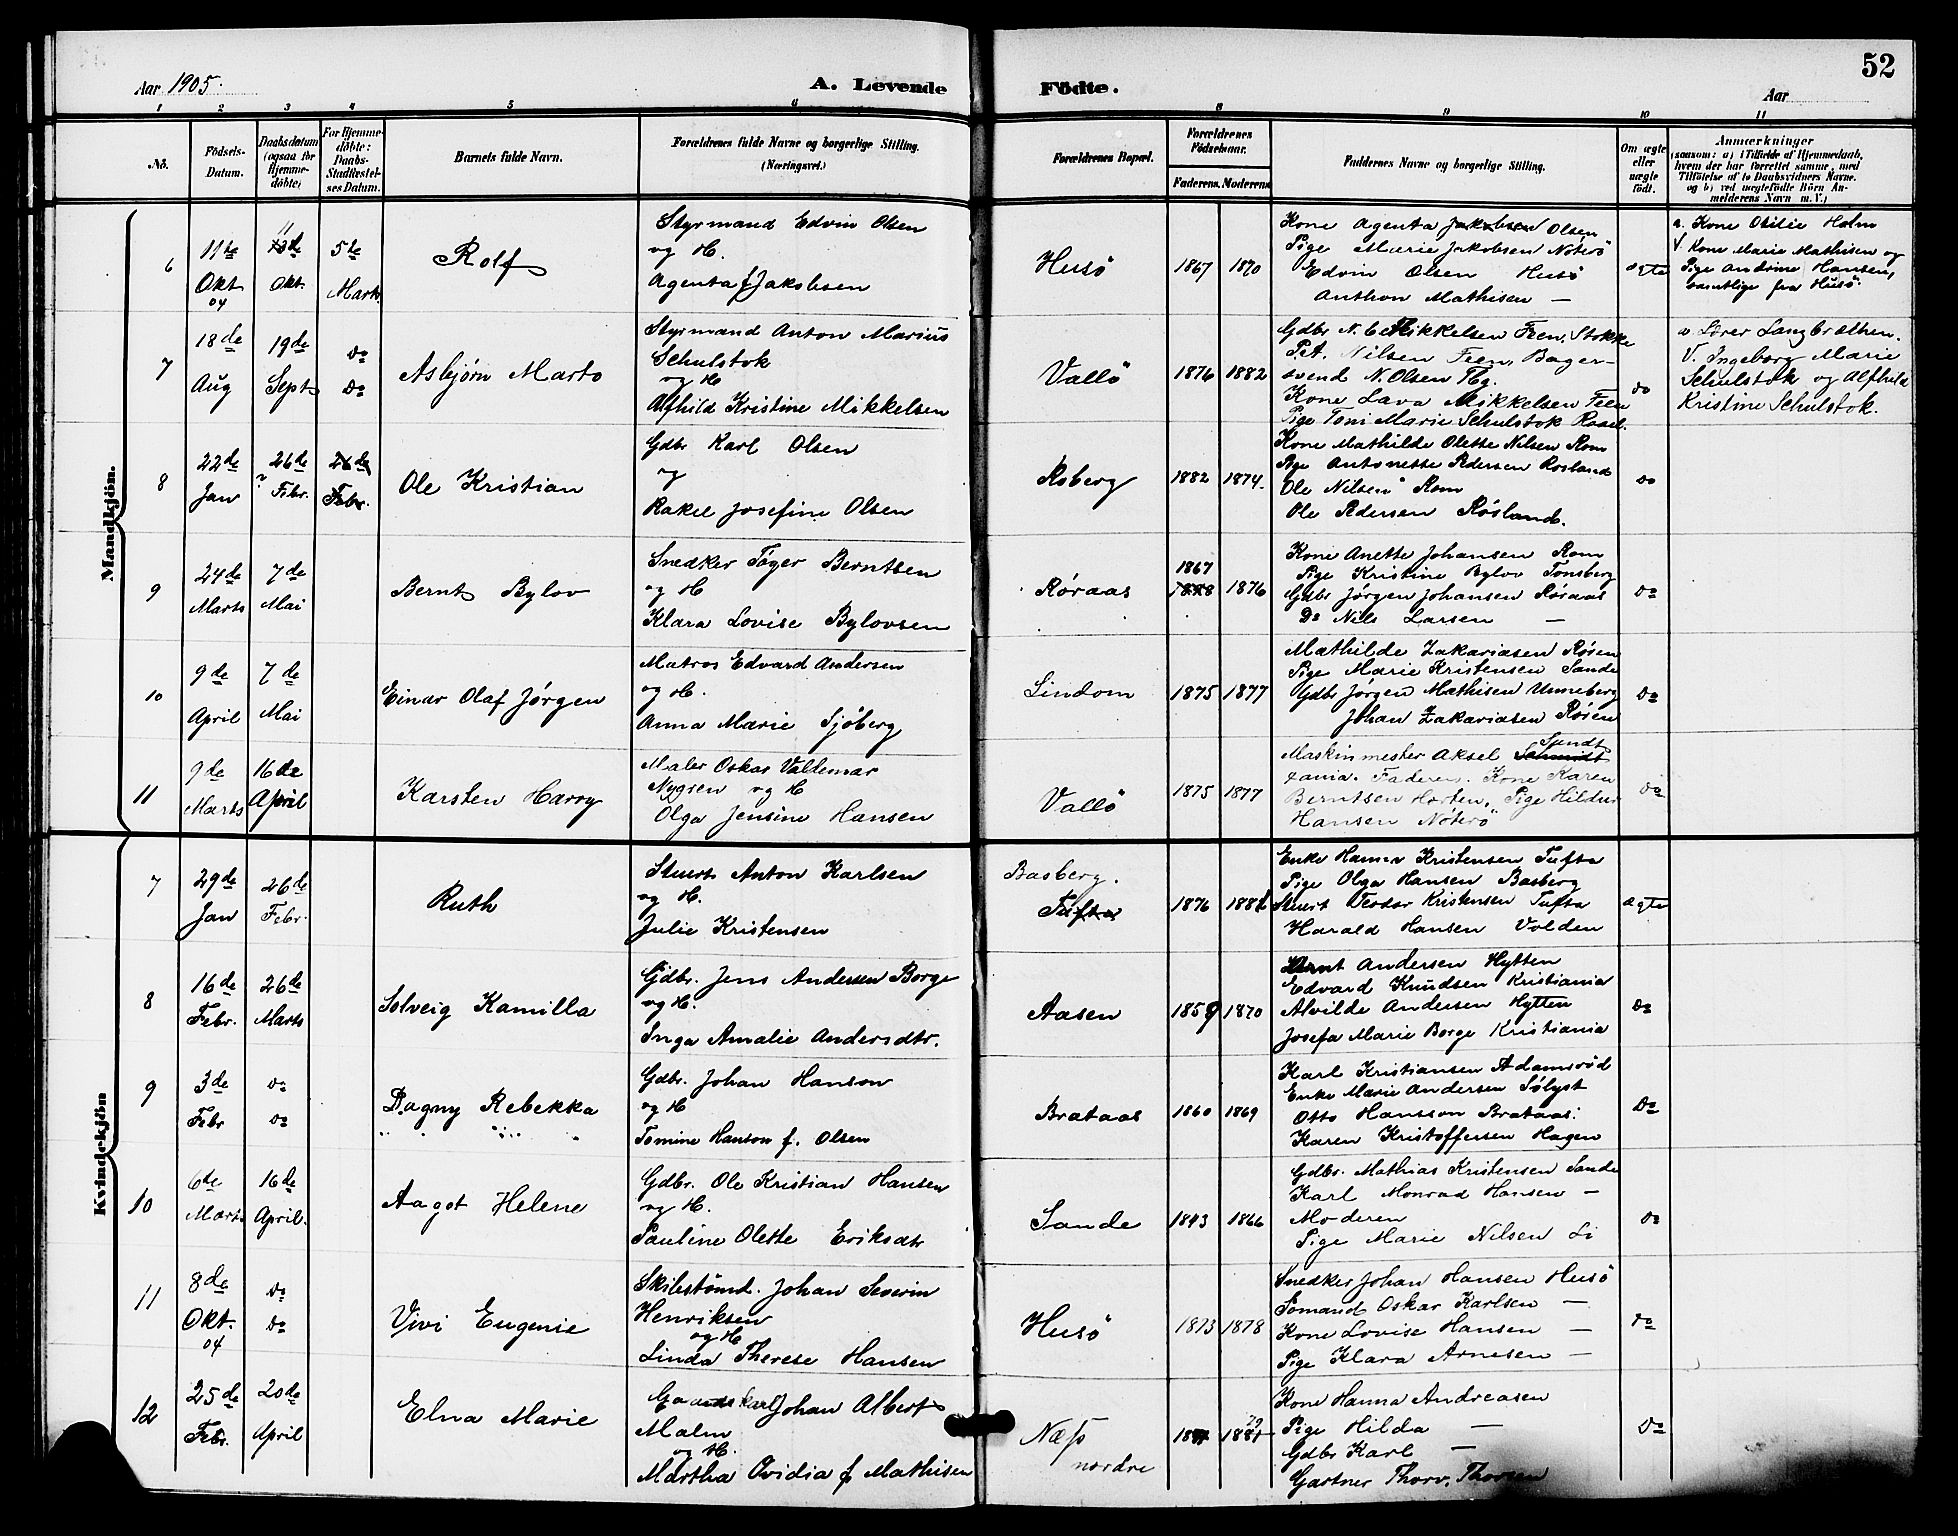 52
Aar 1905.
A. Levende
Födte.
Aar
1 2 3 4 5 6 8 9 10 11
No.
Födsels-Datum.
Daabsdatum (ogsaa for Hjemmedöbte)
For Hjemmedöbte: Daabs-Stadfæstelses Datum.
Barnets fulde Navn.
Forældrenes fulde Navne og borgerlige Stilling.
(Næringsvei.)
Forældrenes Bopæl.
Forældrenes Födselsaar.
Faderens. Moderens.
Faddernes Navne og borgerlige Stilling.
Om ægte eller uægte födt.
Anmærkninger
(saasom: a) i Tilfælde af Hjemmedaab, hvem der har forrettet samme, med Tilföielse af to Daabsvidners Navne. og b) ved uægtefödte Börn Anmelderens Navn m. V.)
Mandkjön.
6
11te Okt 04
11 de Okt.
5te Marts
Rolf
Styrmand Edvin Olsen
og H.
Agenta f Jakobsen
Husö
1867 1870
Kone Agenta Jakobsen Olsen
Pige Marie Jakobsen Nöterö
Edvin Olsen Husö
Anthon Mathisen —
ægte
a. Kone Otilie Holm
V. Kone Marie Mathisen og
Pige Andrine Hansen,
samtlige fra Husö.
7
18de Aug
19de Sept
Do Do
Asbjørn Marto
Styrmand Anton Marius
Schulstok
og H
Alfhild Kristine Mikkelsen
Vallö
1876 1882
Gdbr N. C. Mikkelsen Feen, Stokke
Pet. Nilsen Feen, Bager-
svend N. Olsen Tbg.
Kone Lava Mikkelsen Feen
Pige Toni Marie Schulstok Raael.
do
a Lærer Langbræthen.
V. Ingeborg Marie
Schulstok og Alfhild
Kristine Schulstok.
8
22de Jan
26de Febr.
26de Febr.
Ole Kristian
Gdbr Karl Olsen
og
Rakel Josefine Olsen
Rsberg
1882 1874
Kone Mathilde Olette Nilsen Rom
Pige Antonette Pedersen Rosland
Ole Nilsen Rom
Ole Pedersen Røsland.
do
9
24de Marts
7de Mai
Bernt Bylov
Snedker Töger Berntsen
og H
Klara Lovise Bylovsen
Røraas
1867
1876
Kone Anette Johansen Rom
Pige Kristine Bylov Tønsberg
Gdbr Jørgen Johansen Røraas
Do Nils Larsen —
Do
10
9de April
7de Mai
Einar Olaf Jørgen
Matros Edvard Andersen
og H.
Anna Marie Sjöberg
Lindom
1875 1877
Mathilde Zakariasen Røsen
Pige Marie Kristensen Sande
Gdbr Jørgen Mathisen Unneberg
Johan Zakariasen Røsen
Do
11
9de Marts
16de April
Karsten Harry
Maler Oskar Valdemar
Nygren og H
Olga Jensine Hansen
Vallö
1875 1877
Sundt
Maskinmester Aksel Schmidt
Xania. Faderen. Kone Karen
Berntsen Horten. Pige Hildur
Hansen Nöterö
Do
Kvindekjön
7
29de Jan
26de Febr.
Ruth
Stuert Anton Karlsen
og H.
Julie Kristensen
Basberg.
Tufta
1876 1881
Enke Hanna Kristensen Tufta
Pige Olga Hansen Basberg
Stuert Teodor Kristensen Tufta
Harald Hansen Volden
ægte
8
16de Febr.
26de Marts
Solveig Kamilla
Gdbr. Jens Andersen Borge
og H.
Inga Amalie Andersdtr.
Aasen
1859 1870
Bernt Andersen Hytten
Edvard Knudsen Kristiania
Alvilde Andersen Hytten
Josefa Marie Borge Kristiania
Do
9
3de Febr
Do Do
Dagny Rebekka
Gdbr. Johan Hanson
og H
Tomine Hanson f. Olsen
Brataas
1860 1869
Karl Kristiansen Adamsrød
Enke Marie Andersen Sølyst
Otto Hansson Brataas.
Karen Kristoffersen Hagen
Do
10
6de Marts
16de April.
Aagot Helene
Gdbr. Ole Kristian Hansen
og H.
Pauline Olette Eriksdtr
Sande
1843 1866
Gdbr. Mathias Kristensen Sande
Karl Monrad Hansen —
Moderen
Pige Marie Nilsen Li
Do
11
8de Okt. 04
Do Do
Vivi Eugenie
Skibstømd. Johan Severin
Henriksen
og H
Linda Therese Hansen
Husö
1873 1878
Snedker Johan Hansen Husö
Sømand Oskar Karlsen —
Kone Lovise Hansen —
Pige Klara Arnesen —
Do
12
25de Febr.
20de April
Elna Marie
Gaardskarl Johan Albert
Malm
og H.
Martha Ovidia f Mathisen
Næss
nordre
79
1881
Kone Hanna Andreasen
Pige Hilda —
Gdbr Karl —
Gartner Thorv. Thorsen
Do